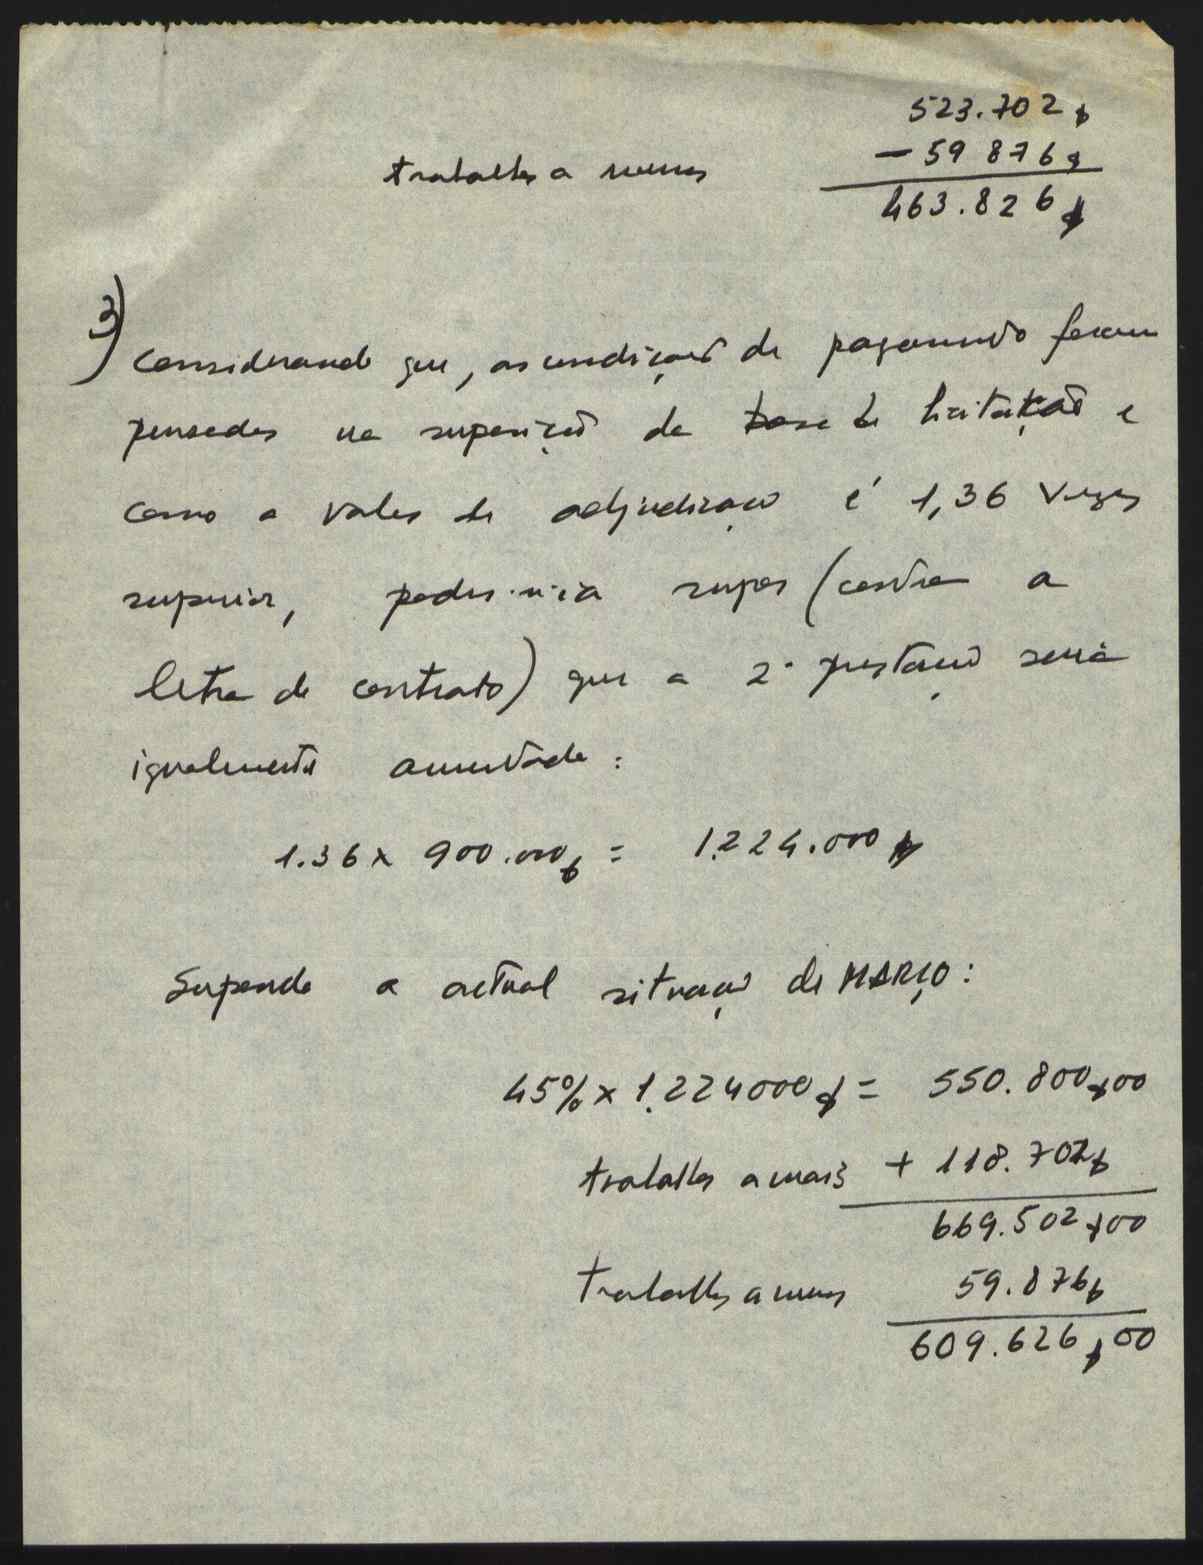 523.702$
trabalhos a menos — 59 876$
463.826$
3) Considerando que, as condições de pagamento foram
pensadas na suposição da base de licitação e
como o valor de adjudicação é 1,36 vezes
superior, poder-se-ia supor (contra a
letra do contrato) que a 2ª prestação seria
igualmente aumentada:
1.36 x 900.000$ = 1.224.000$
Supondo a actual situação de MARÇO:
45% x 1.224000$ = 550.800$00
trabalhos a mais + 118.702$
669.502$00
Trabalhos a menos 59.876$
609.626$00